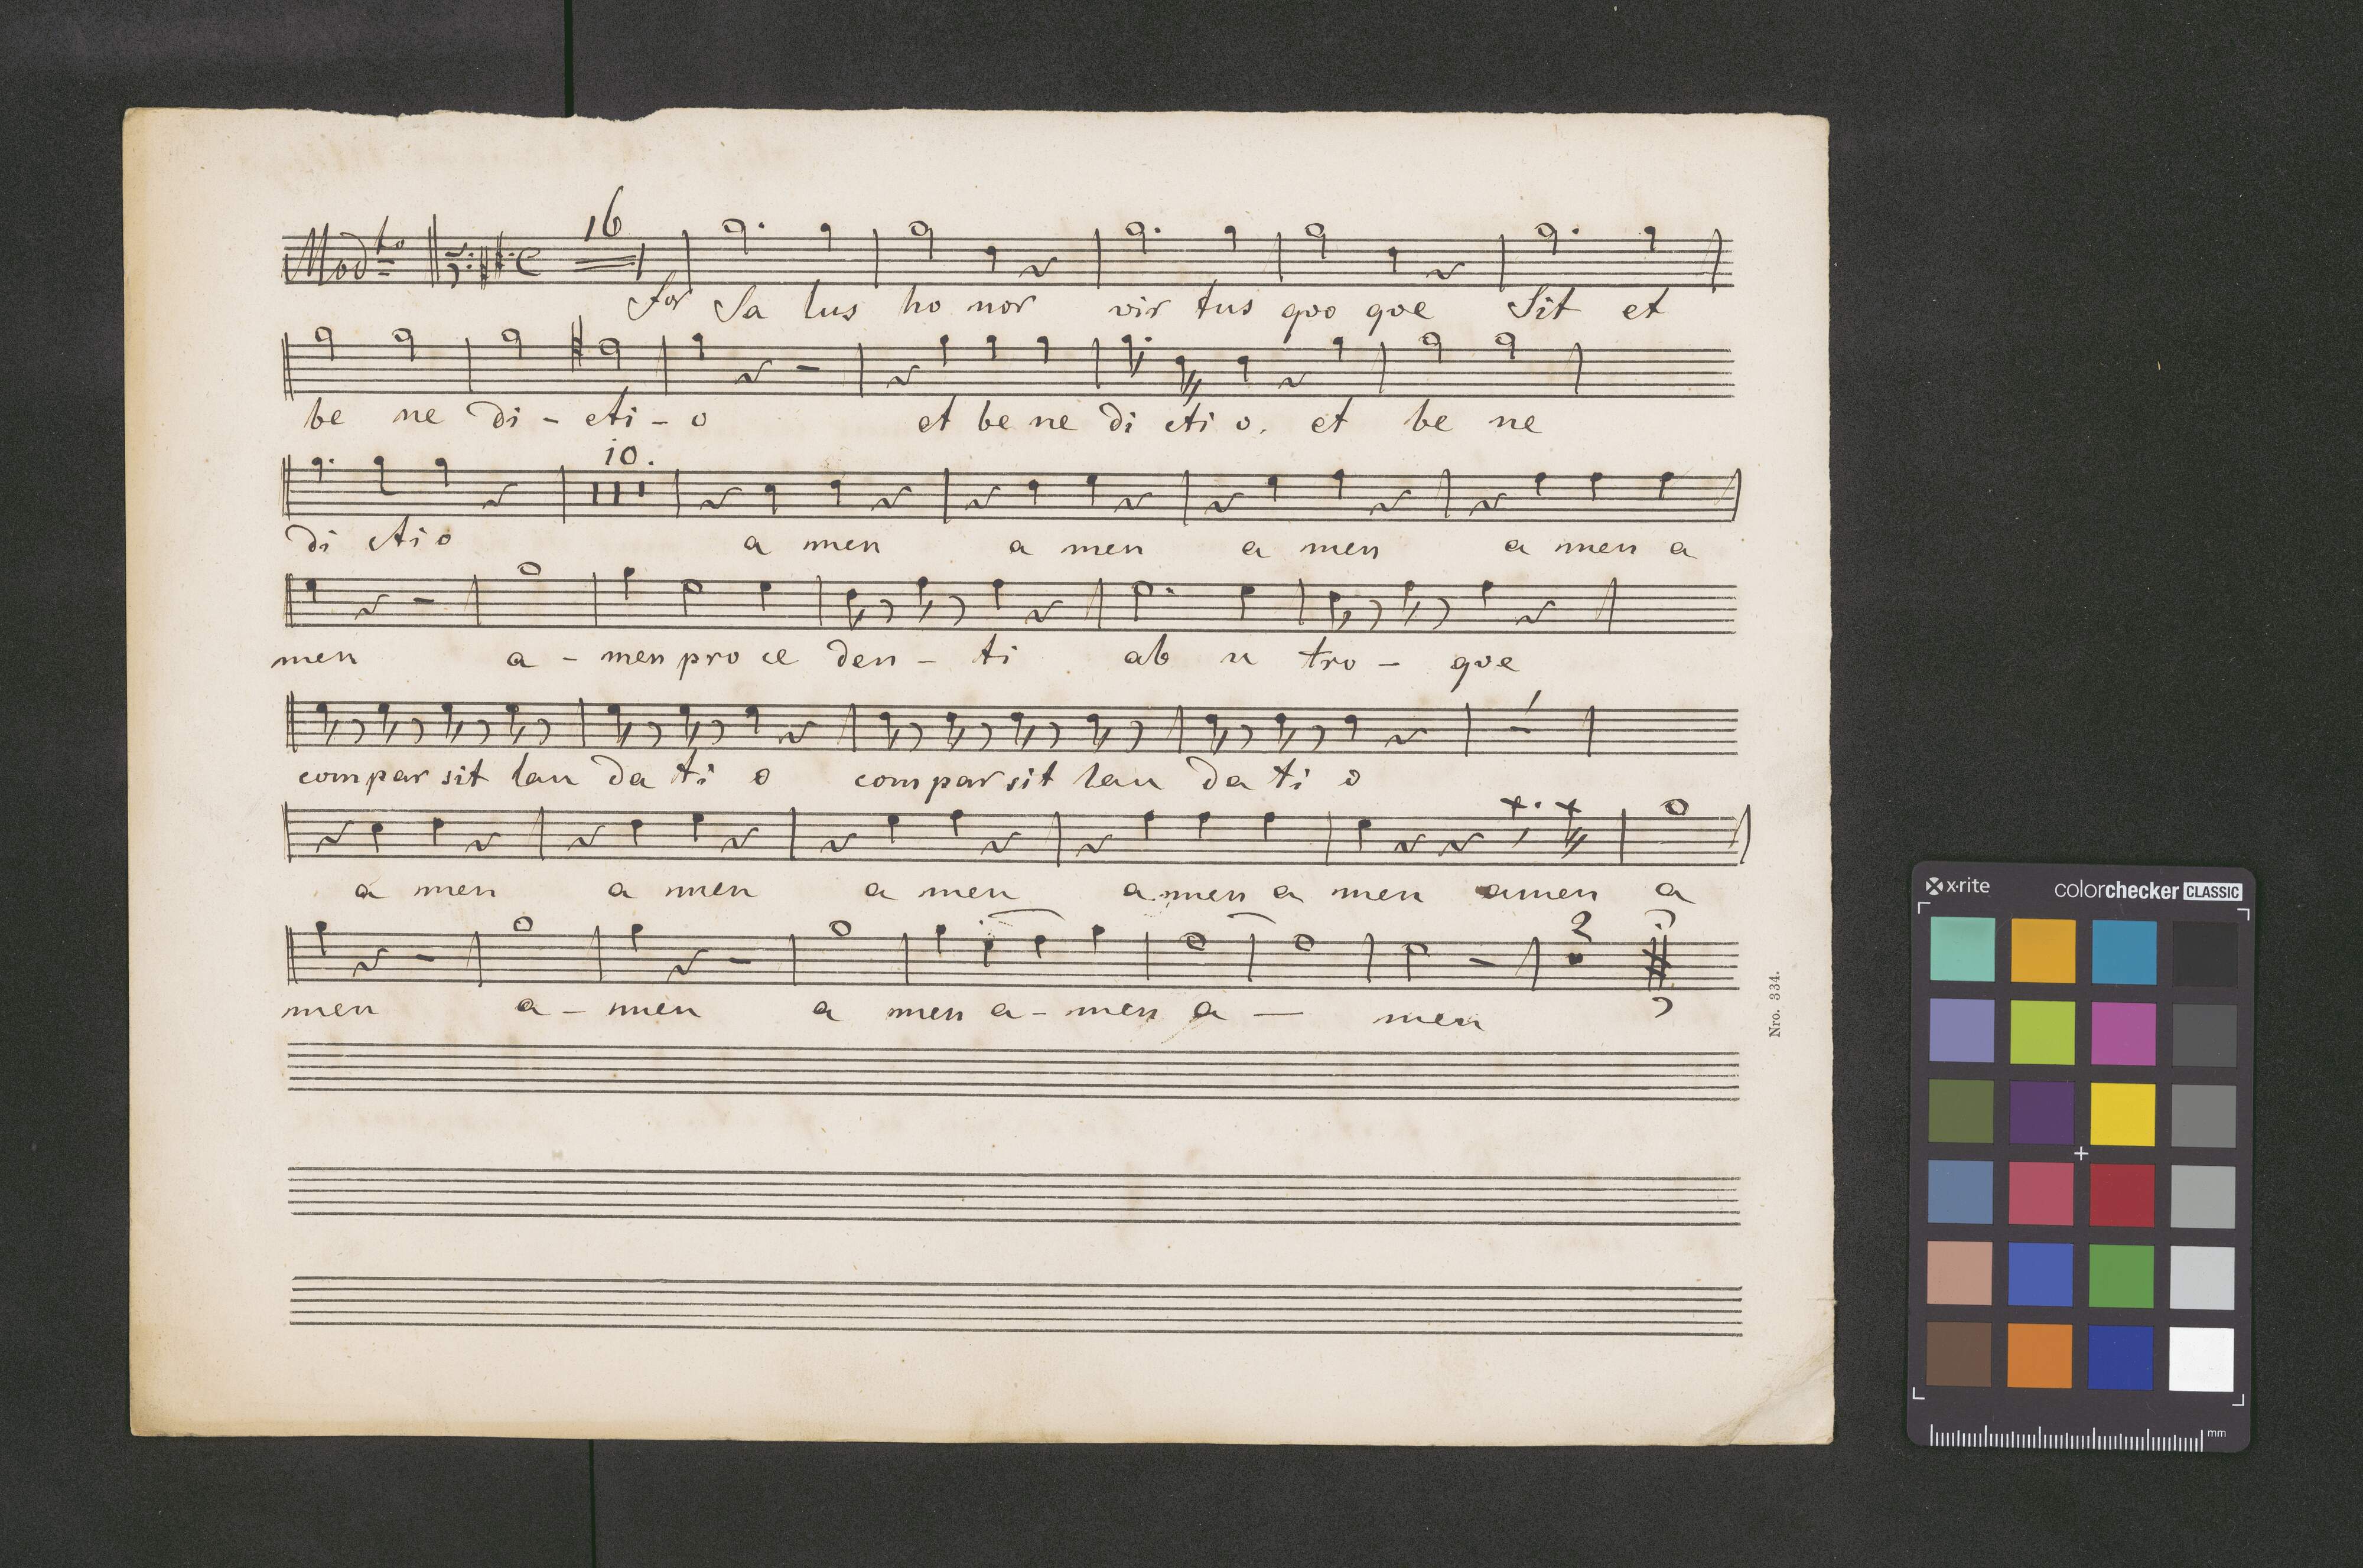 Modto 16
for Sa lus ho nor vir tus quo que Sit et
be ne di - cti - o et be ne di cti o. et be ne
10.
di cti o a men a men a men a men a
men a - men pro ce den - ti ab u tro - que
com par sit lau da ti o com par sit lau da ti o
a men a men a men a men a men amen a
2
men a - men a men a - men a — men
Nro. 334.
x·rite colorchecker CLASSIC
mm